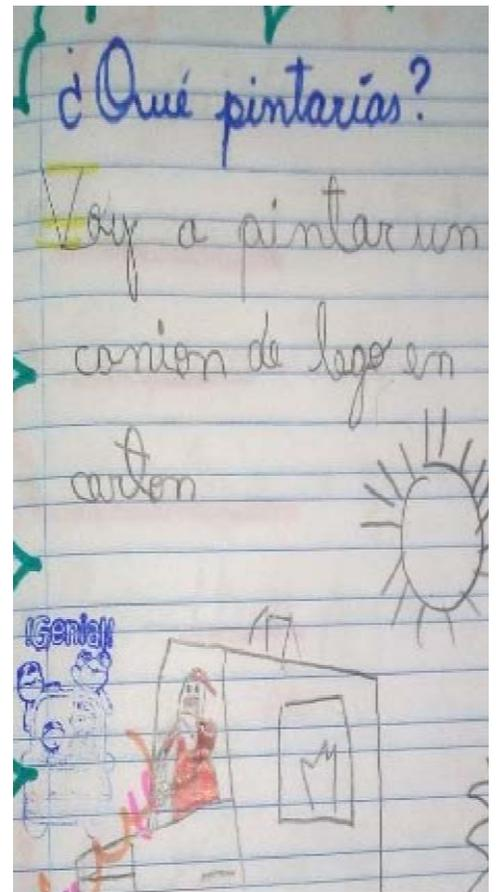 ¿Qué pintarías?
Voy a pintar un
canion de lego en
carton
¡Genial!
M